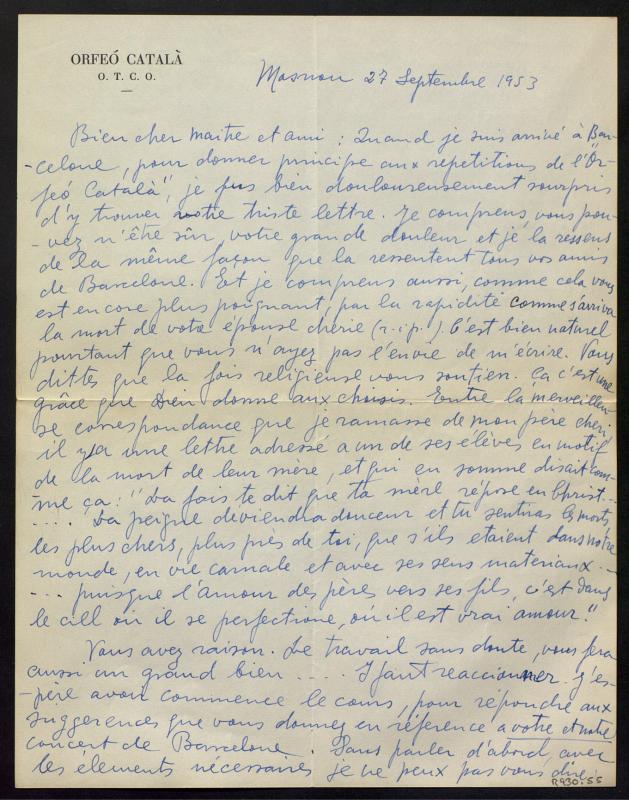 ORFEÓ CATALÀ
O. T. C. O.
Masnou 27 Septembre 1953
Bien cher maitre et ami : Quand je suis arrivé à Bar-
-celone, pour donner principe aux repetitions de l'"Or-
feó Català", je fus bien douloureusement surpris
d'y trouver votre triste lettre. Je comprens, vous pou-
-vez n'être sûr, votre grande douleur et je la ressens
de la même façon que la ressentent tous vos amis
de Barcelone. Et je comprens aussi, comme cela vous
est encore plus poignant, par la rapidité comme s'arriva
la mort de votre épouse chérie (r.i.p.). C'est bien naturel
pourtant que vous n'ayez pas l'envie de m'écrire. Vous
dittes que la fois religieuse vous soutien. Ça c'est une
grâce que Dieu donne aux choisis. Entre la merveilleu-
se correspondance que je ramasse de mon père chéri
il y a une lettre adressé a un de ses elèves en motif
de la mort de leur mère, et qui en somme disait com-
-me ça: "La fois te dit que ta mère répose en Christ...
.... La peigne deviendra douceur et tu sentiras les morts
les plus chers, plus près de toi, que s'ils etaient dans nôtre
monde, en vie carnale et avec ses sens materiaux ...
... puisque l'amour des pères vers ses fils, c'est dans
le cill où il se perfectione, où il est vrai amour."
Vous avez raison. Le travail sans doute, vous fera
aussi un grand bien .... I faut reaccionner. J'es-
-père avoir commence le cours, pour répondre aux
suggerences que vous donnez en référence a votre et notre
concert de Barcelone. Sans parler d'abord, avec
les elements nécessaires je ne peux pas vous dire
R930:55